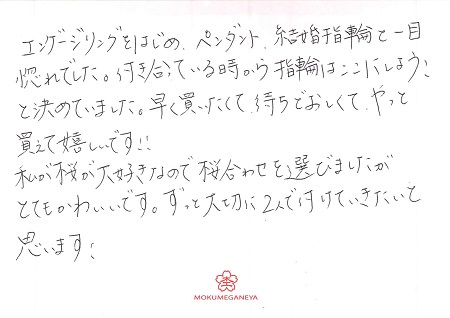 エンゲージリングをはじめ、ペンダント、結婚指輪と一目
惚れでした。付き合っている時から指輪はここにしよう!
と決めていました。早く買いたくて、待ちどおしくて、やっと
買えて嬉しいです!!
私が桜が大好きなので桜合わせを選びましたが
とてもかわいいです。ずっと大切に2人で付けていきたいと
思います!
MOKUMEGANEYA